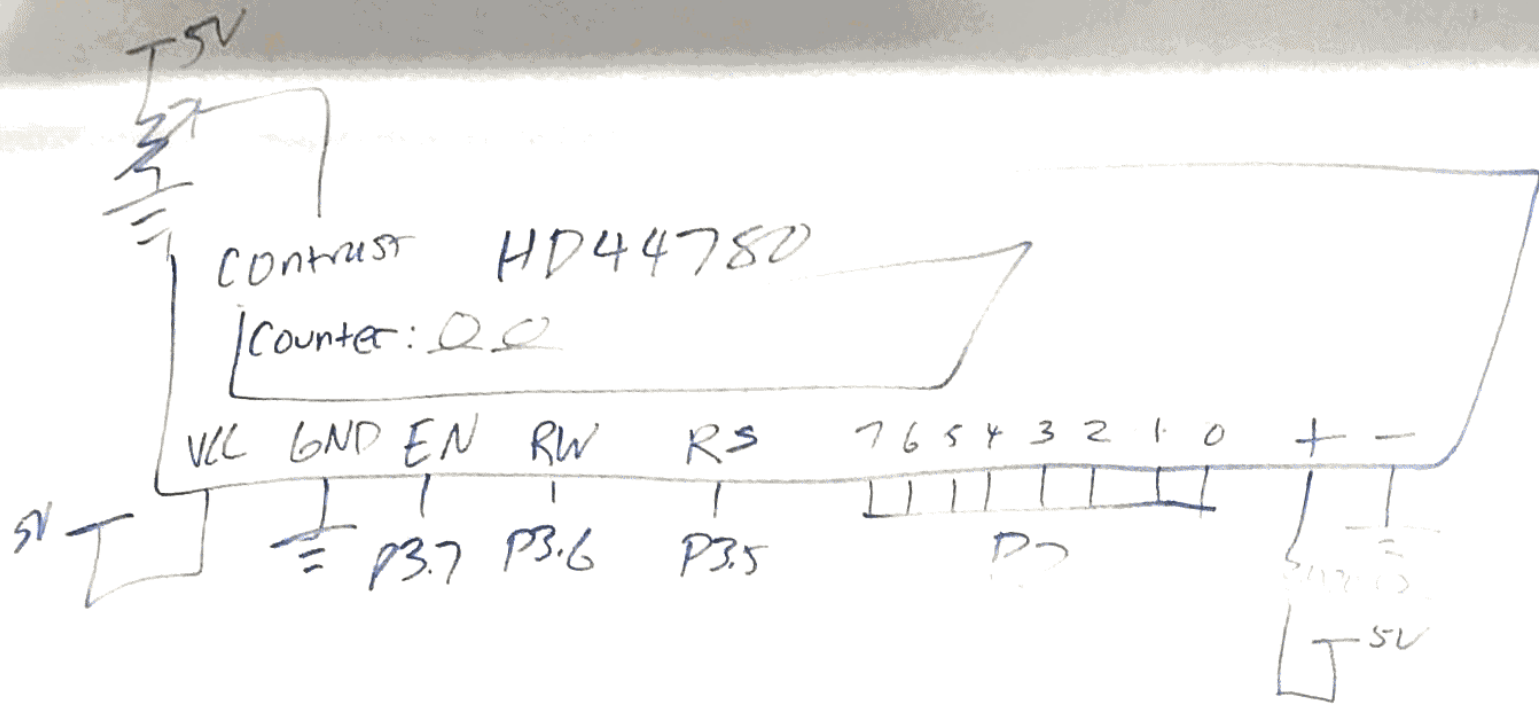 5V
Contrast HD44780
Counter: 00
VCC GND EN RW RS 7 6 5 4 3 2 1 0 + -
5V P3.7 P3.6 P3.5
5V